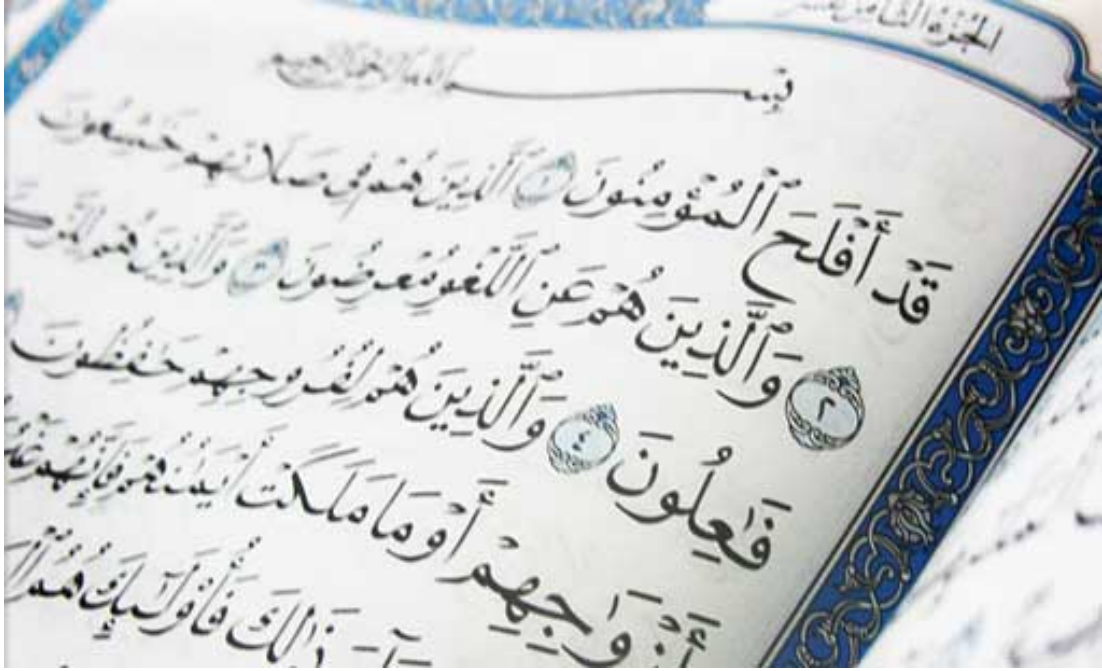 الجزء الثامن عشر
بِسْمِ اللَّهِ الرَّحْمَٰنِ الرَّحِيمِ
قَدْ أَفْلَحَ ٱلْمُؤْمِنُونَ ١ ٱلَّذِينَ هُمْ فِى صَلَاتِهِمْ خَٰشِعُونَ
٢ وَٱلَّذِينَ هُمْ عَنِ ٱللَّغْوِ مُعْرِضُونَ ٣ وَٱلَّذِينَ هُمْ
فَٰعِلُونَ ٤ وَٱلَّذِينَ هُمْ لِفُرُوجِهِمْ حَٰفِظُونَ
أَزْوَٰجِهِمْ أَوْ مَا مَلَكَتْ أَيْمَٰنُهُمْ فَإِنَّهُمْ
ذَٰلِكَ فَأُو۟لَٰٓئِكَ هُمُ